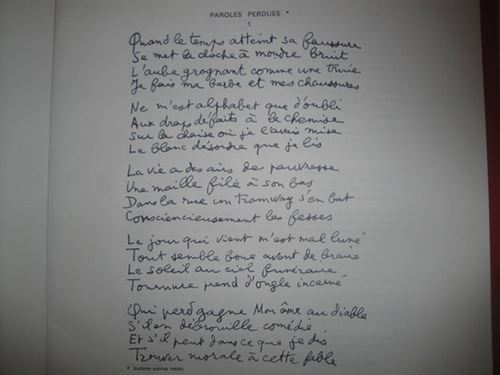 PAROLES PERDUES *
1
Quand le temps atteint sa faussure
Se met la cloche à moudre bruit
L'aube grognant comme une truie
Je fais ma barbe et mes chaussures
Ne m'est alphabet que d'oubli
Aux draps défaits à la chemise
Sur la chaise où je l'avais mise
Le blanc désordre que je lis
La vie a des airs de pauvresse
Une maille filé à son bas
Dans la rue un tramway s'en bat
Consciencieusement les fesses
Le jour qui vient m'est mal luné
Tout semble boue avant de braire
Le soleil au ciel funéraire
Tournure prend d'ongle incarné
Qui perd gagne Mon âme au diable
S'il en débrouille comédie
Et s'il peut dans ce que je dis
Trouver morale à cette fable
* poèmes inédits